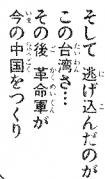 そして 逃げ込んだのが
この台湾さ…
その後 革命軍が
今の中国をつくり